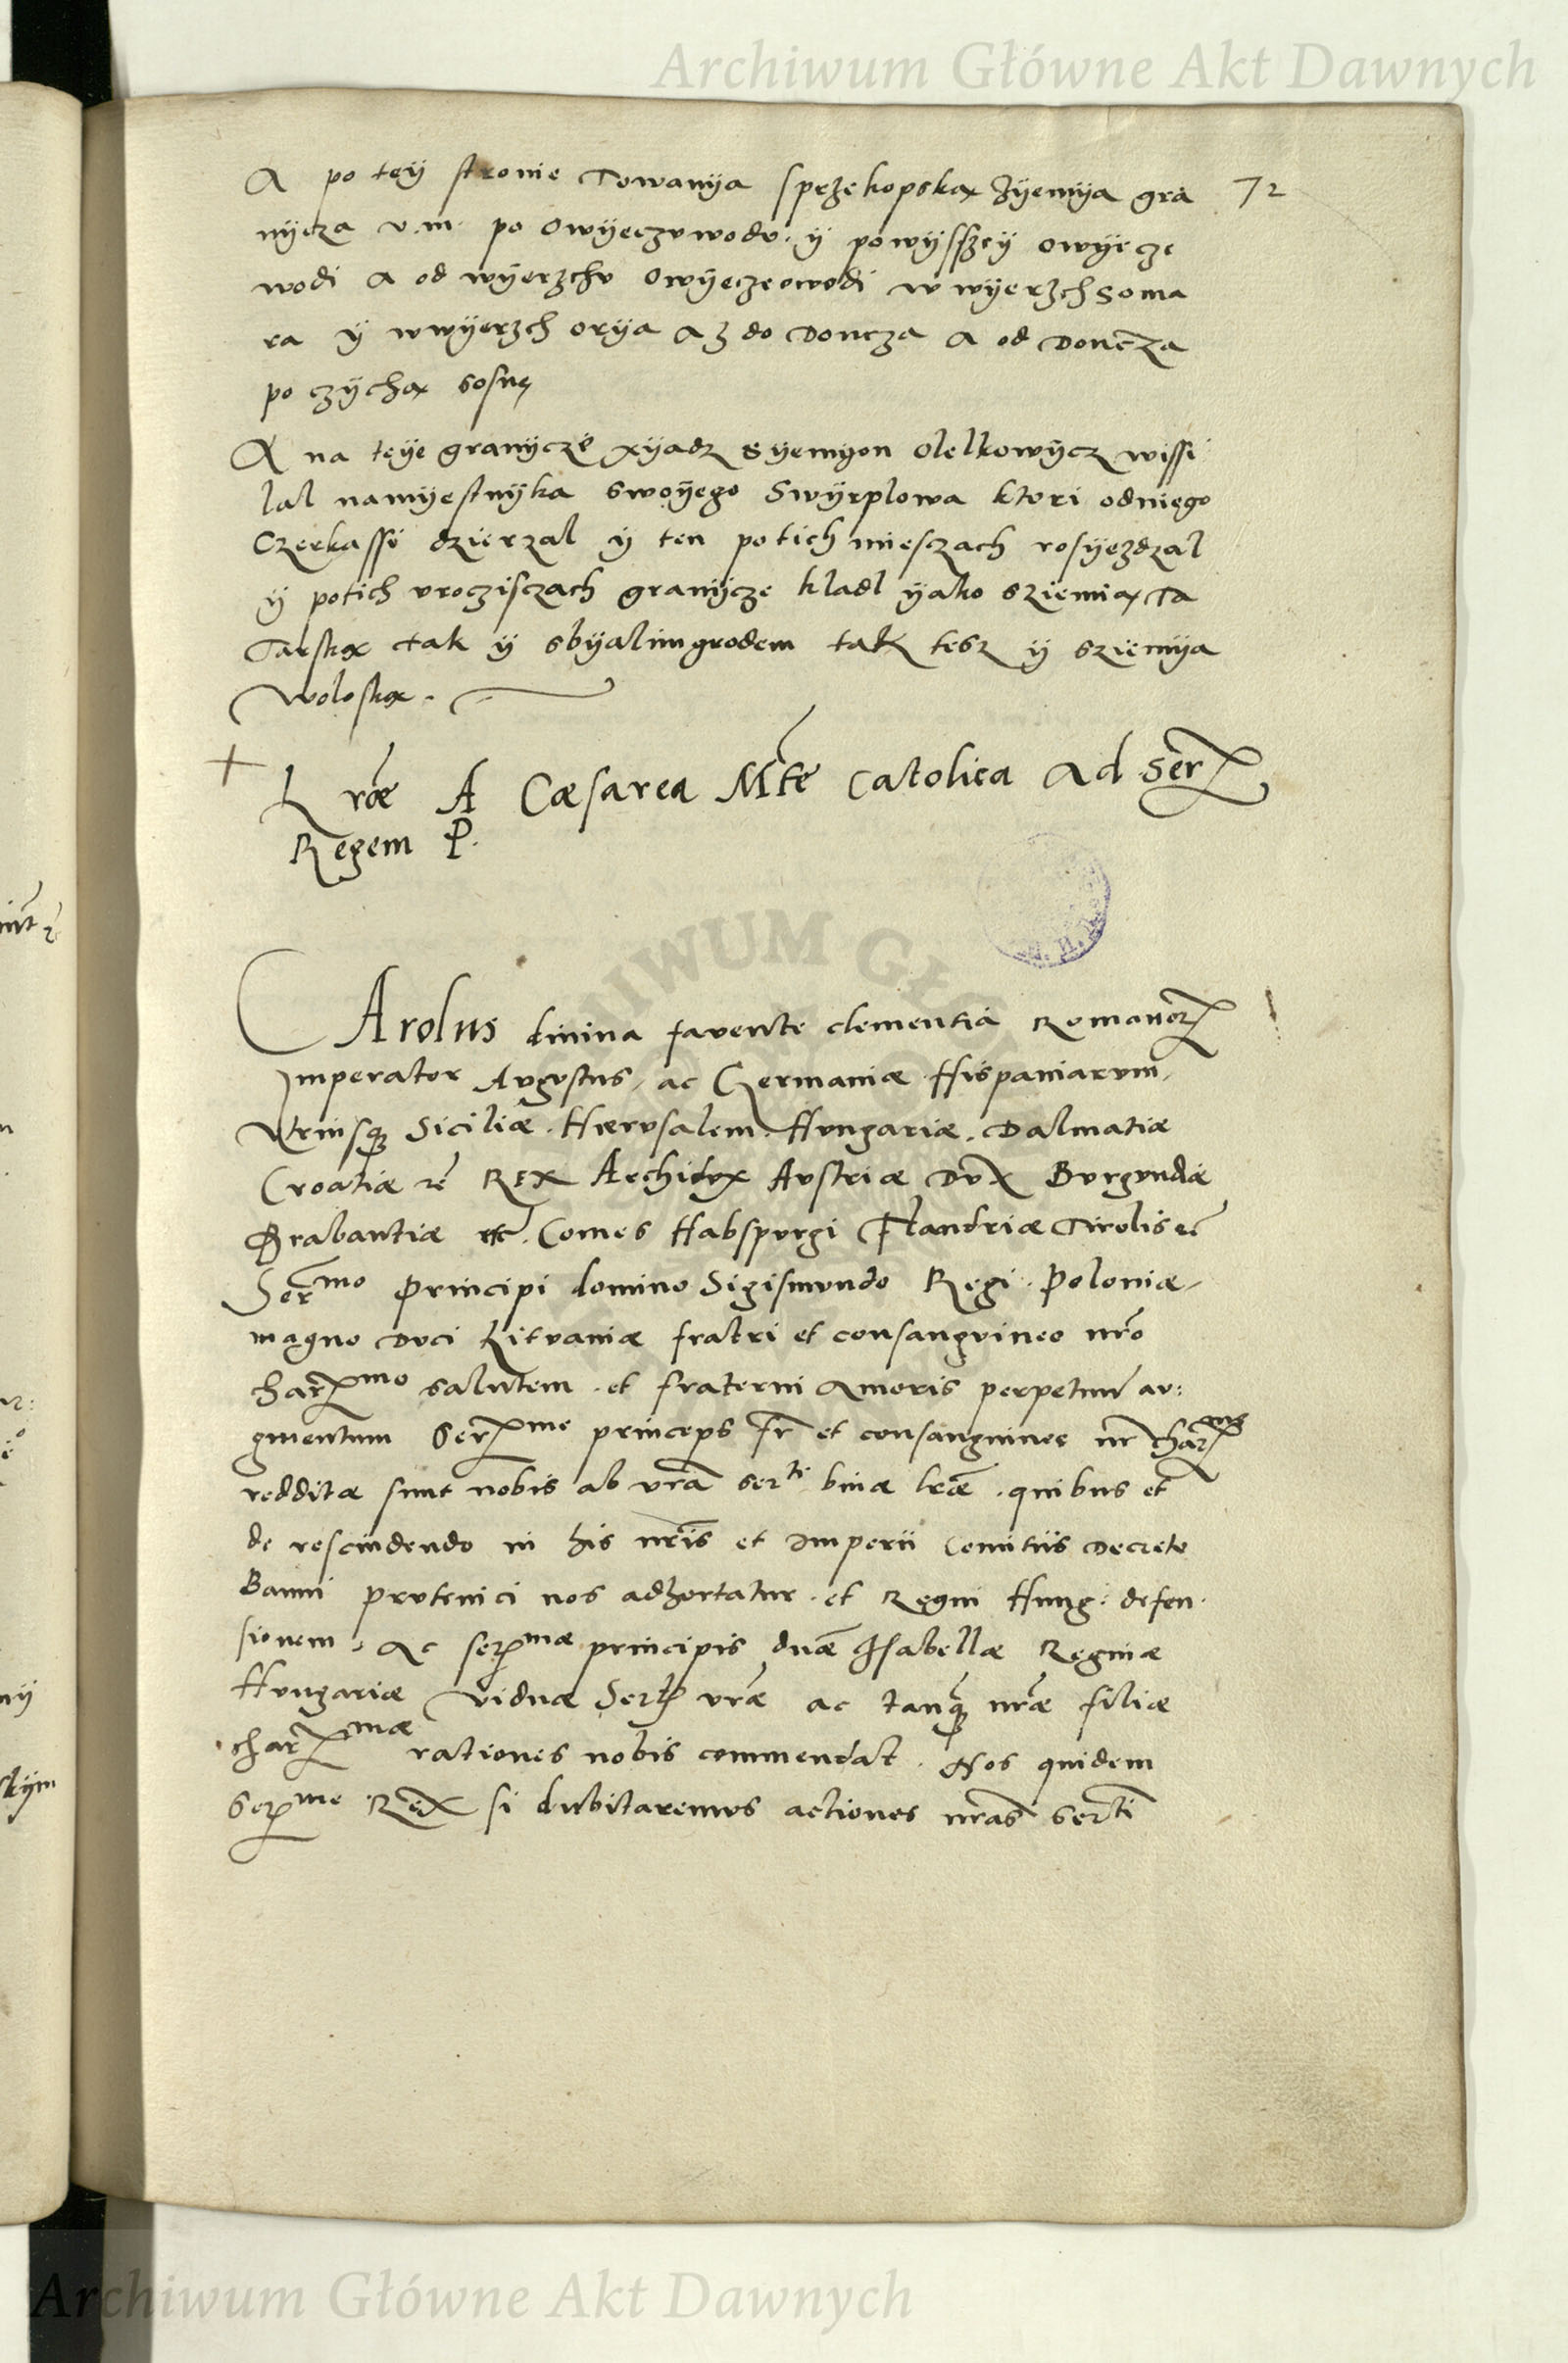 Archiwum Główne Akt Dawnych
A po teÿ stronie Towanÿa sprzekopską Zÿemÿa gra 72
nÿcza v.m. po Owÿeczvwodv. ÿ powÿsszeÿ owÿecze
wodi A od wÿerzchv Owÿeczeowodi w wÿerzch Soma
ra ÿ wwÿerzch orÿa Az do Doncza A od Doncza
po czÿchą sosnę
A na teÿe granÿcze xÿadz Sÿemÿon Olelkowÿcz wissi
lal namÿestnÿka swoÿego Swÿrplowa ktori odniego
Czerkassi dzierzal ÿ ten potich miesczach rosÿezdzal
ÿ potich vroczisczach granÿcze kladl ÿako sziemią Ta
Tarską tak ÿ sbÿalimgrodem tak tesz ÿ sziemÿa
woloską.
+ Lrae A Caesarea Mte Catolica Ad Ser
Regem P.
CArolus divina favente clementia Romanor
Imperator Avgvstus, ac Germaniæ Hispaniarvm,
Vtriusq Siciliæ. Hiervsalem. Hvngariæ. Dalmatiæ
Croatiæ etc Rex Archidvx Avstriæ Dvx Bvrgvndiæ
Brabantiæ etc. Comes Habspvrgi Flandriæ Tirolis etc
Sermo Principi domino Sigismvndo Regi Poloniæ,
magno Dvci Litvaniæ fratri et consangvineo nro
charmo salutem. et fraterni Amoris perpetuu av:
gmentum Serme princeps fr et consanguinee nr charme
redditæ sunt nobis ab vra serti binæ lræ. quibus et
de rescindendo in his nris et Imperii Comitiis Decreto
Banni prvtenici nos adhortatur. et Regni Hung: defen
sionem, Ac sermæ principis dnæ Isabellæ Reginæ
Hvngariæ Viduæ Sertis vræ ac tanq nræ filiæ
charmæ rationes nobis commendat. Nos quidem
Serme Rex si dubitaremvs actiones nras Serti
Archiwum Główne Akt Dawnych